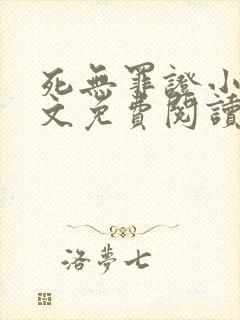 死無罪證小
文免費閱讀
洛夢七